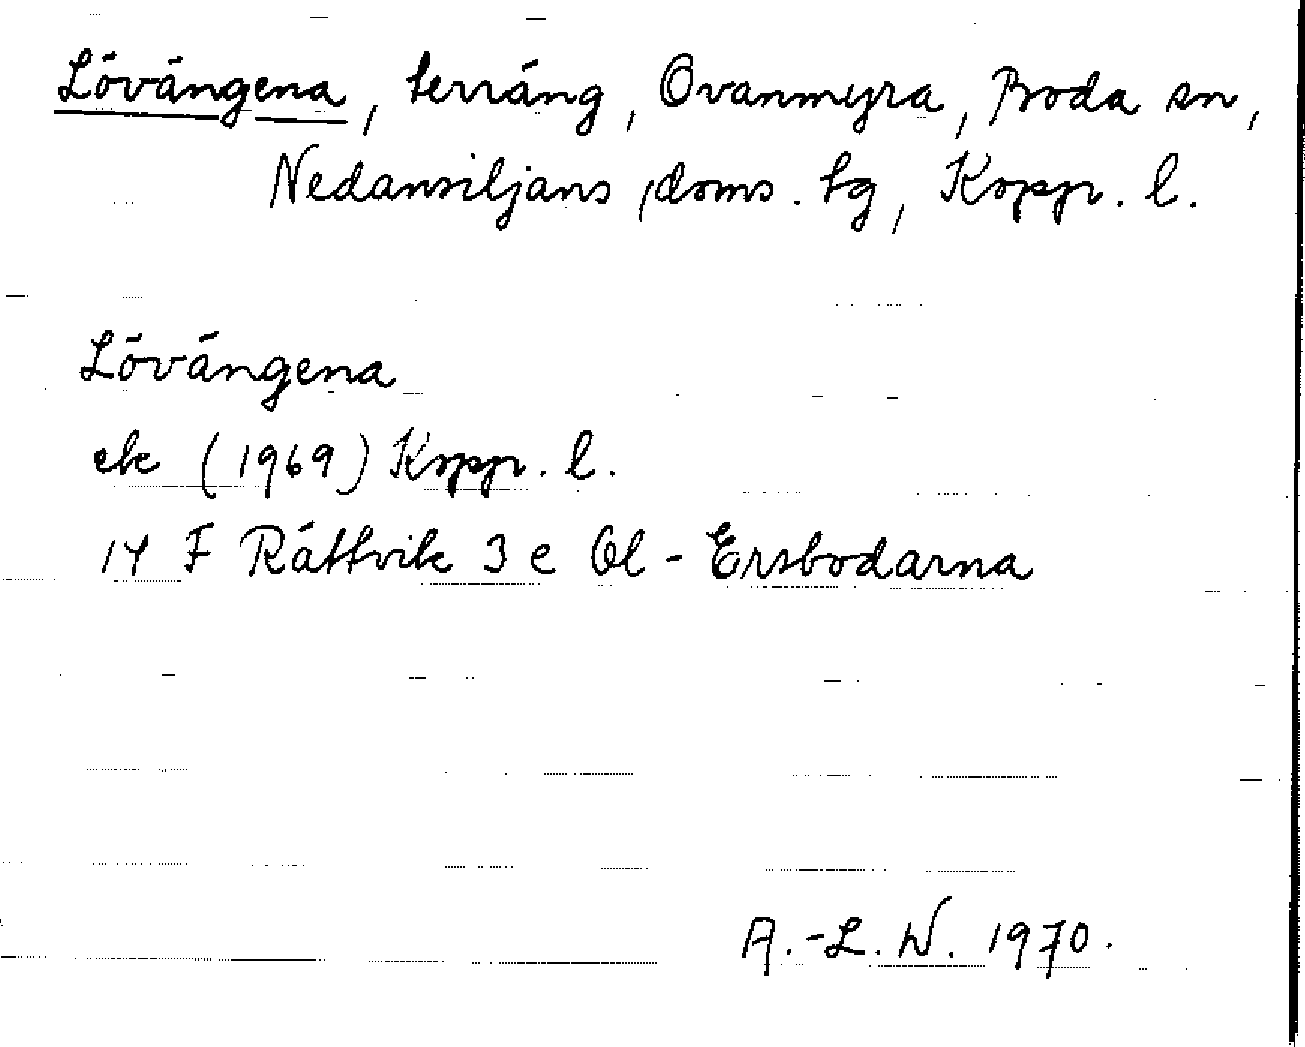 Lövängena, terräng, Ovanmyra, Boda sn,
Nedansiljans doms. tg, Kopp. l.
Lövängena
ek (1969) Kopp. l.
14 F Rättvik 3 e Ol - Ersbodarna
A.-L. W. 1970.